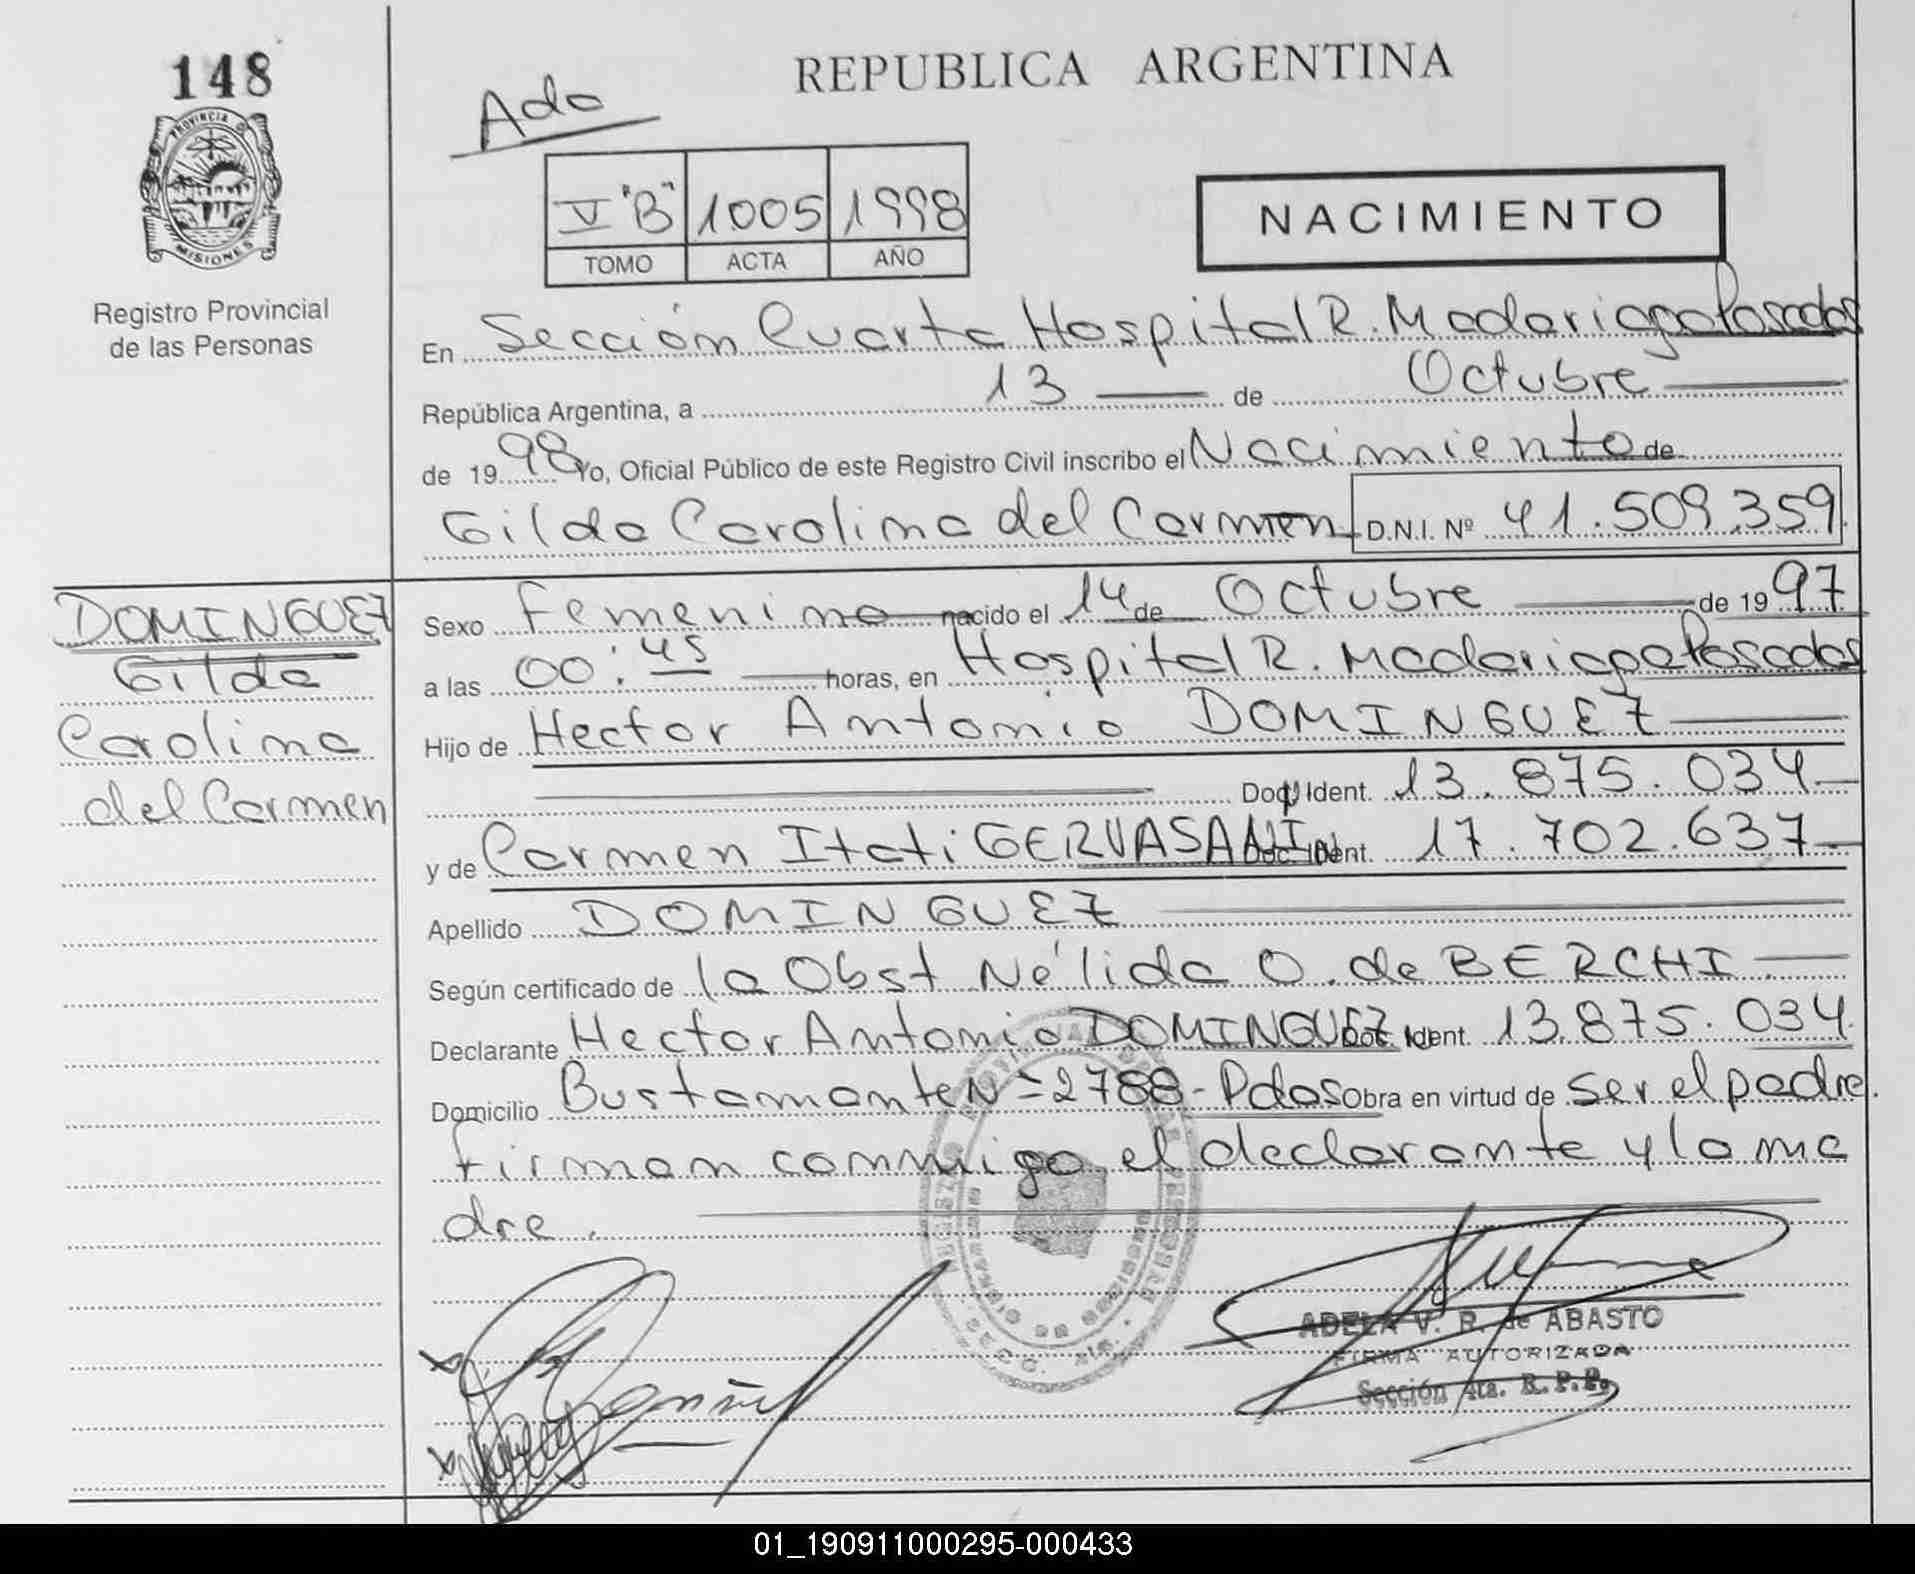 148
REPUBLICA ARGENTINA
Ada
V "B" 1005 1998
TOMO ACTA AÑO
NACIMIENTO
PROVINCIA DE
MISIONES
Registro Provincial
de las Personas
En Sección Cuarta Hospital R. Madariaga Posadas
República Argentina, a 13 de Octubre
de 1998 Yo, Oficial Público de este Registro Civil inscribo el Nacimiento de
Gilda Carolina del Carmen D.N.I. Nº 41.509.359
DOMINGUEZ
Gilda
Carolina
del Carmen
Sexo Femenino nacido el 14 de Octubre de 1997
a las 00:45 horas, en Hospital R. Madariaga Posadas
Hijo de Hector Antonio DOMINGUEZ
Doc. Ident. 13.875.034
y de Carmen Itati GERVASANI Doc. Ident. 17.702.637
Apellido DOMINGUEZ
Según certificado de la Obst Nélida O. de BERCHI
Declarante Hector Antonio DOMINGUEZ Doc. Ident. 13.875.034
Domicilio Bustamante Nº 2788 - Pdas Obra en virtud de ser el padre.
firman conmigo el declarante y la ma
dre.
ADELA V. R. de ABASTO
FIRMA AUTORIZADA
Sección 4ta. R.P.P.
01_190911000295-000433